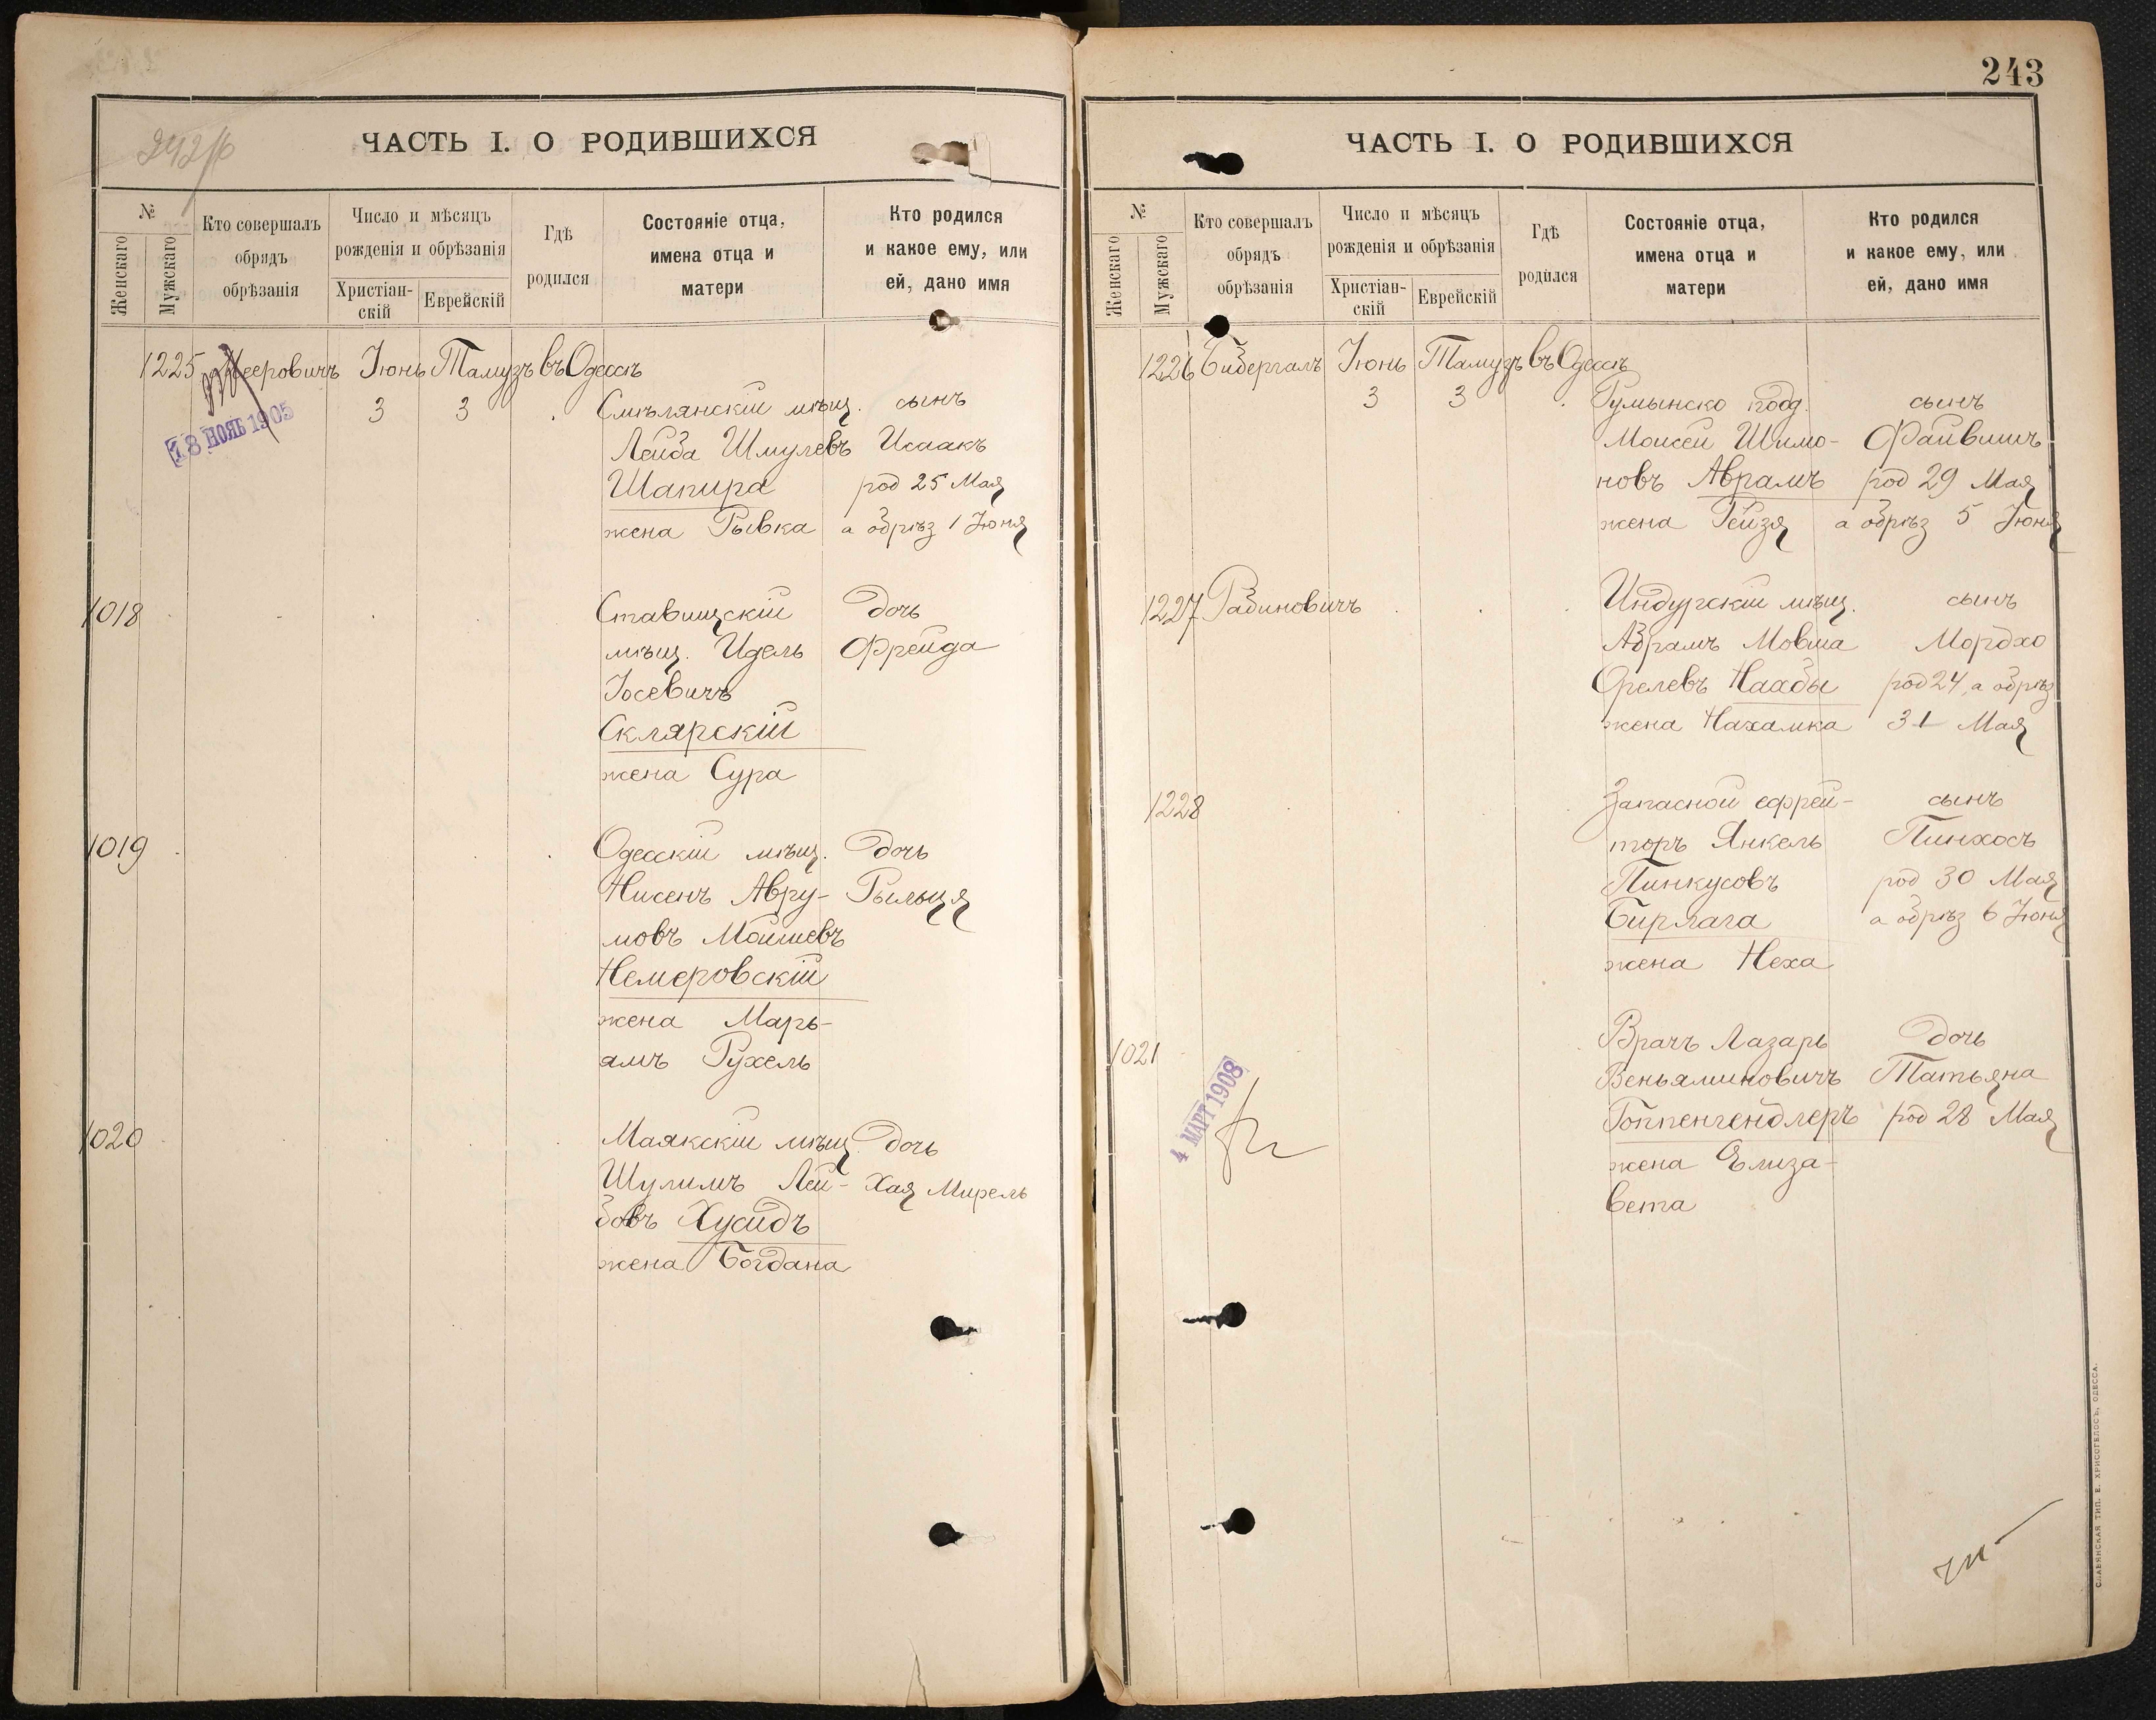 242/б
ЧАСТЬ I. О РОДИВШИХСЯ
№
Женскаго
Мужскаго
Кто совершалъ
обрядъ
обрѣзанія
Число и мѣсяцъ
рожденія и обрѣзанія
Христіан-
скій
Еврейскій
Гдѣ
родился
Состояніе отца,
имена отца и
матери
Кто родился
и какое ему, или
ей, дано имя
1225 Мееровичъ Іюнь Тамузъ въ Одессѣ
18 НОЯБ 1905
3 3 Смѣлянскій мѣщ. сынъ
Лейба Шмулевъ Исаакъ
Шапира род 25 Мая
жена Рывка а обрѣз 1 Іюня
1018 Ставищскій дочь
мѣщ. Идель Фрейда
Іосевичъ
Склярскій
жена Сура
1019 Одесскій мѣщ. дочь
Нисенъ Авру- Рыльця
мовъ Мошевъ
Немеровскій
жена Марь-
ямъ Рухель
1020 Маякскій мѣщ. дочь
Шулимъ Лей- Хая Мирель
бовъ Хусидъ
жена Богдана
243
ЧАСТЬ I. О РОДИВШИХСЯ
№
Женскаго
Мужскаго
Кто совершалъ
обрядъ
обрѣзанія
Число и мѣсяцъ
рожденія и обрѣзанія
Христіан-
скій
Еврейскій
Гдѣ
родился
Состояніе отца,
имена отца и
матери
Кто родился
и какое ему, или
ей, дано имя
1226 Бибергалъ Іюнь Тамузъ въ Одессѣ
3 3 Румынско подд. сынъ
Моисей Шимо- Файвишъ
новъ Аврамъ род 29 Мая
жена Рейзя а обрѣз 5 Іюня
1227 Рабиновичъ Индурскій мѣщ. сынъ
Абрамъ Мовша Мордхо
Орелевъ род 24, а обрѣз
жена Нахамка 31 Мая
1228 Запасной ефрей- сынъ
торъ Янкель Пинхосъ
Пинкусовъ род 30 Мая
Бирлага а обрѣз 6 Іюня
жена Неха
1021 Врачъ Лазарь дочь
4 МАРТ 1908
Веньяминовичъ Татьяна
Гоппенгендлеръ род 28 Мая
жена Елиза-
вета
СЛАВЯНСКАЯ ТИП. Е. ХРИСОГЕЛОСЪ, ОДЕССА.